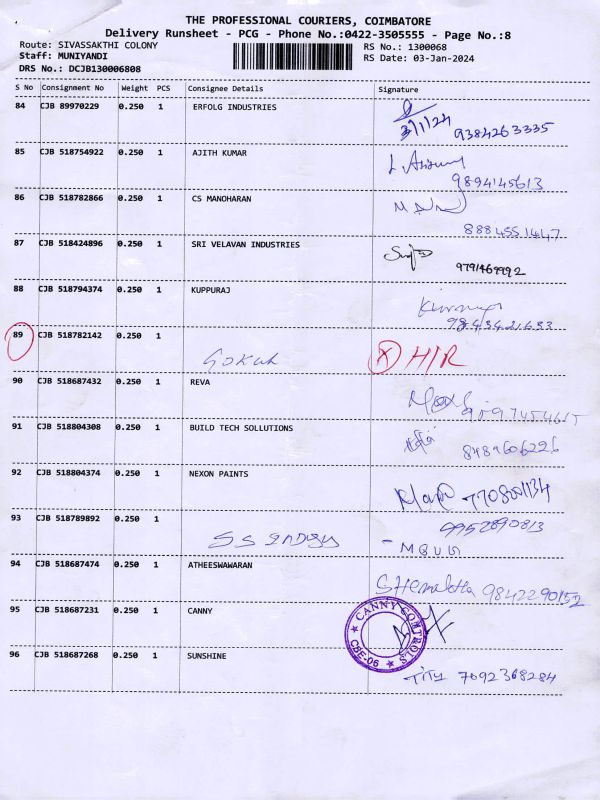 THE PROFESSIONAL COURIERS, COIMBATORE
Delivery Runsheet - PCG - Phone No.:0422-3505555 - Page No.:8
Route: SIVASSAKTHI COLONY RS No.: 1300068
Staff: MUNIYANDI RS Date: 03-Jan-2024
DRS No.: DCJB130006808
S No Consignment No Weight PCS Consignee Details Signature
84 CJB 89970229 0.250 1 ERFOLG INDUSTRIES
3/1/24 9384263335
85 CJB 518754922 0.250 1 AJITH KUMAR
9894145613
86 CJB 518782866 0.250 1 CS MANOHARAN
8884551447
87 CJB 518424896 0.250 1 SRI VELAVAN INDUSTRIES
88 CJB 518794374 0.250 1 KUPPURAJ
89 CJB 518782142 0.250 1 X H/R
90 CJB 518687432 0.250 1 REVA
91 CJB 518804308 0.250 1 BUILD TECH SOLLUTIONS
8489606226
92 CJB 518804374 0.250 1 NEXON PAINTS
93 CJB 518789892 0.250 1 9952890813
94 CJB 518687474 0.250 1 ATHEESWAWARAN
9842290152
95 CJB 518687231 0.250 1 CANNY
CANNY CONTROLS
CBE-06
96 CJB 518687268 0.250 1 SUNSHINE
7092368284